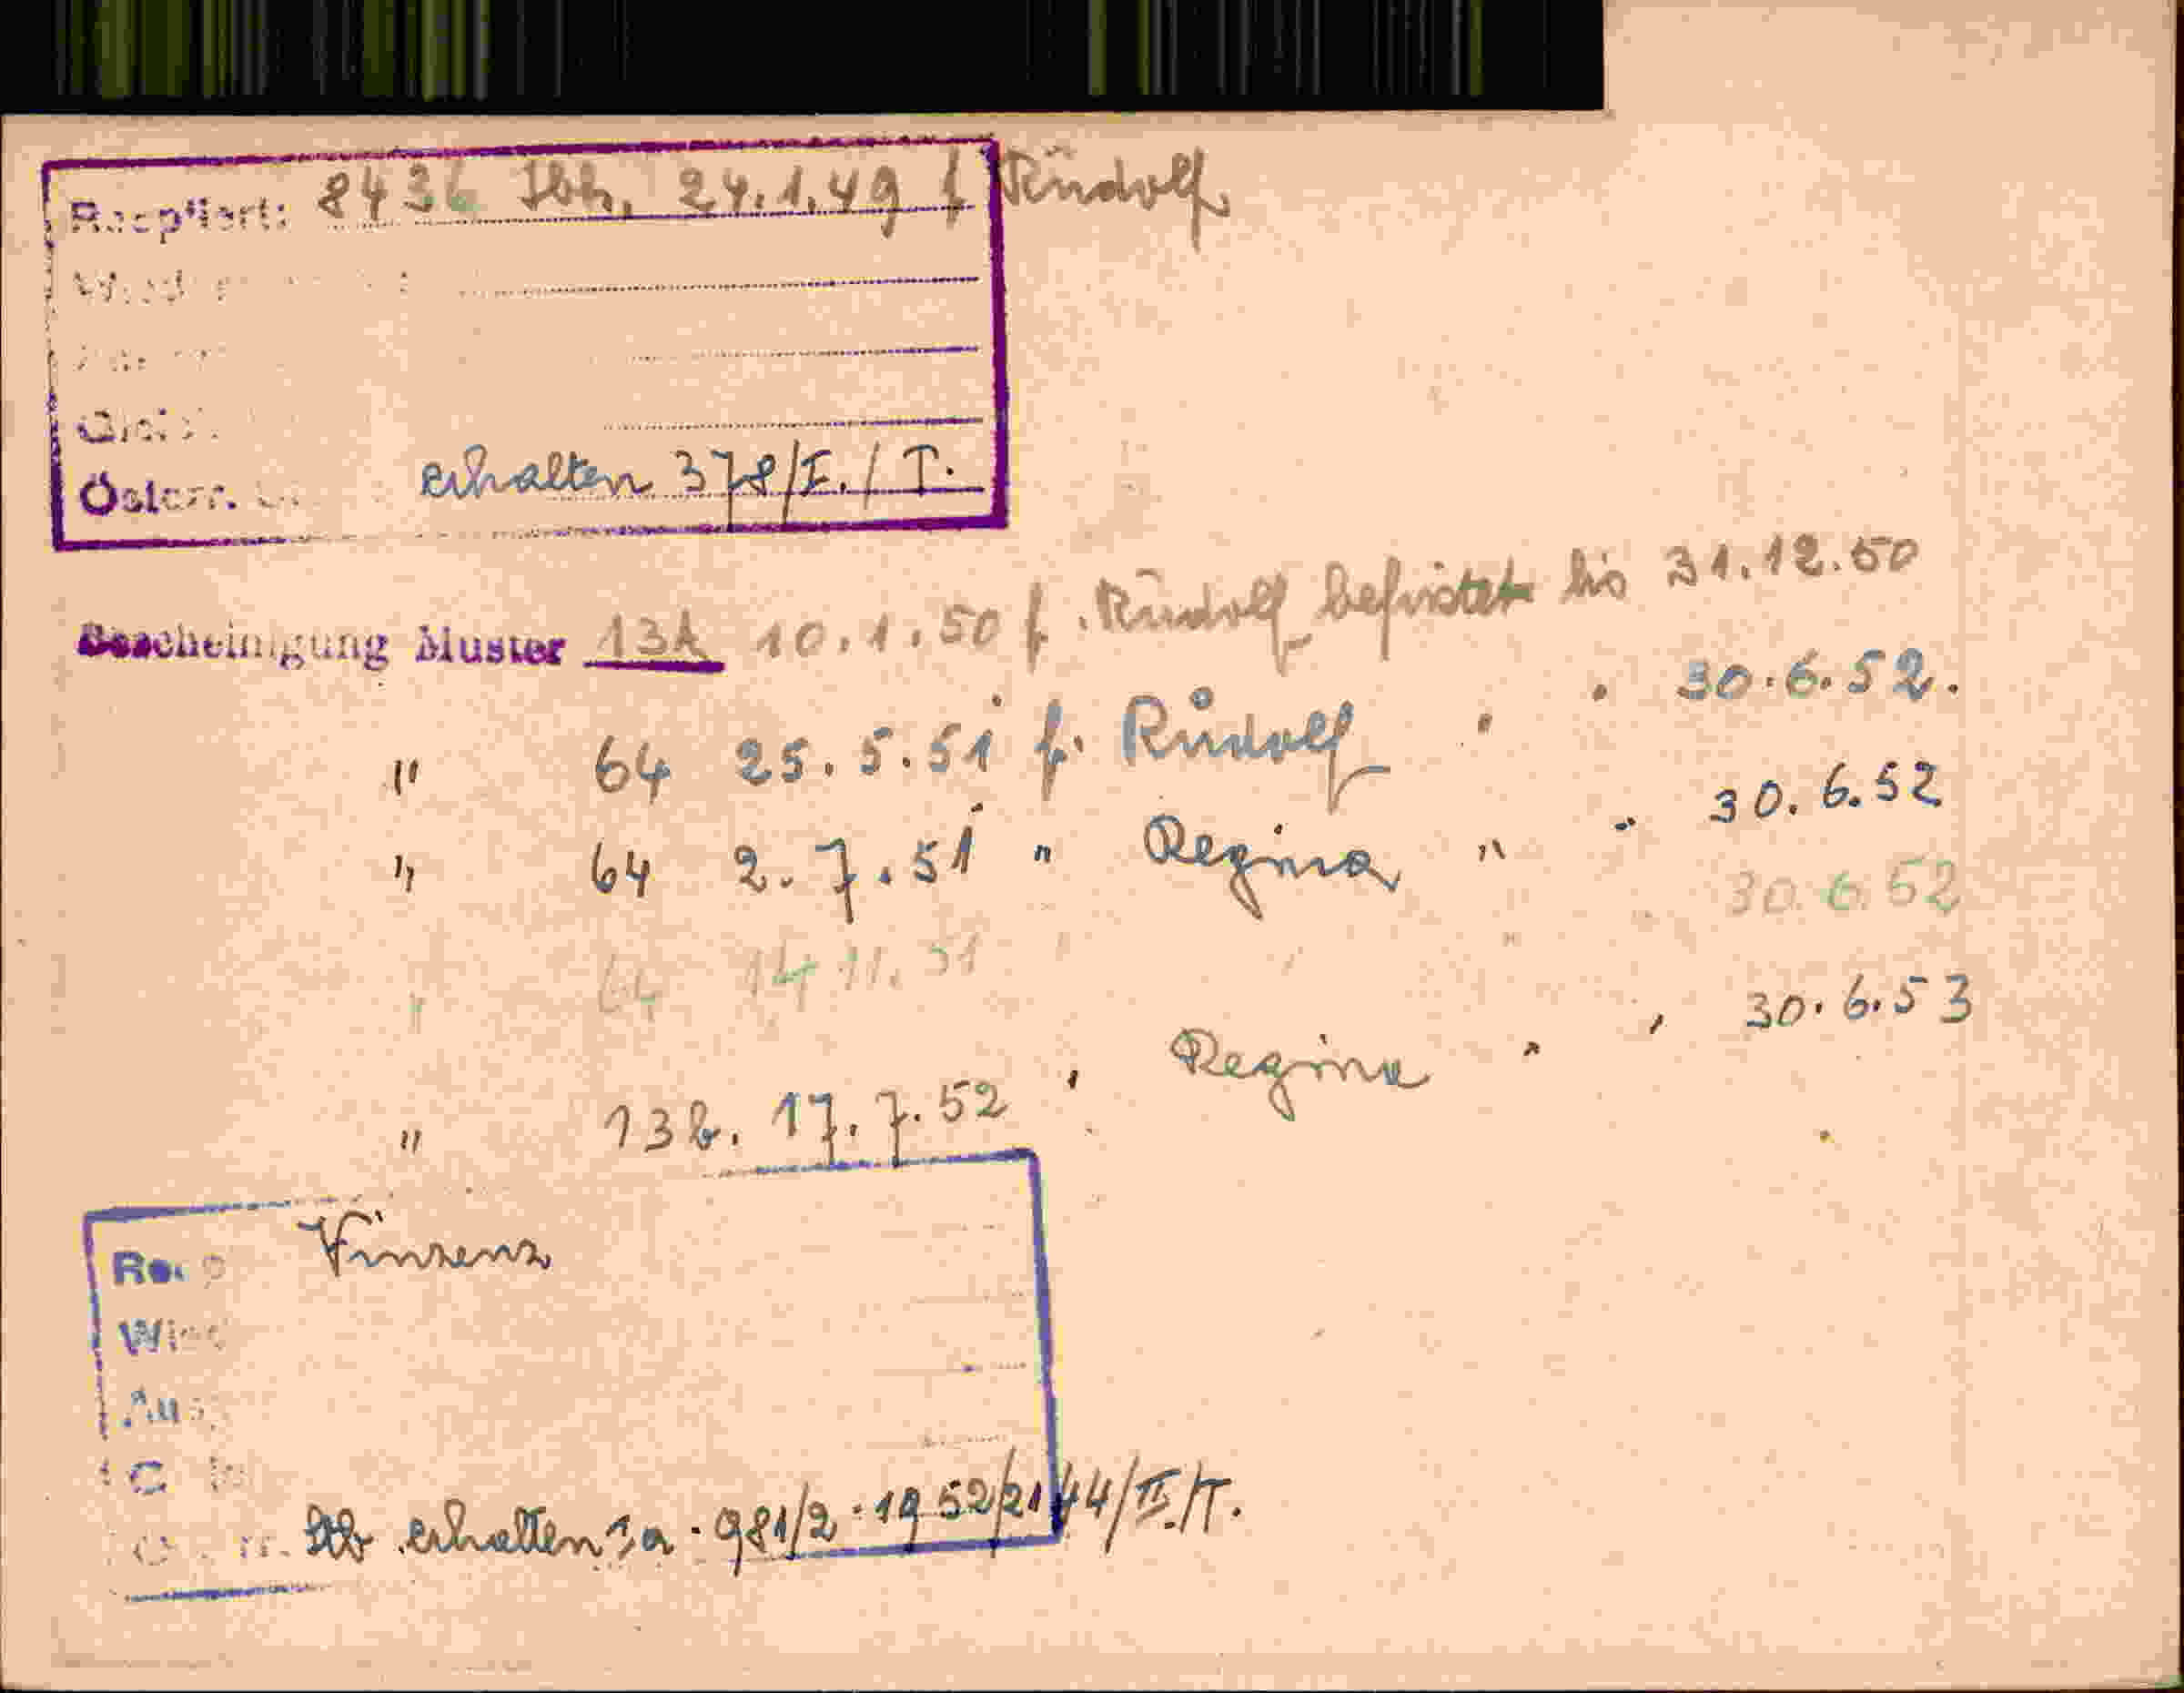 8436 24.1.49 f Rudolf
Österr. erhalten 378/I./T.
Bescheinigung Muster 13A 10.1.50 f. Rudolf befristet bis 31.12.50
" 64 25.5.51 f. Rudolf " " 30.6.52.
" 64 2.7.51 " Regina " " 30.6.52
" 64 14.11.51 " " 30.6.52
" 13b. 17.7.52 " Regina " " 30.6.53
Vinzenz
erhalten 981/2 . 1952/2144/II./T.